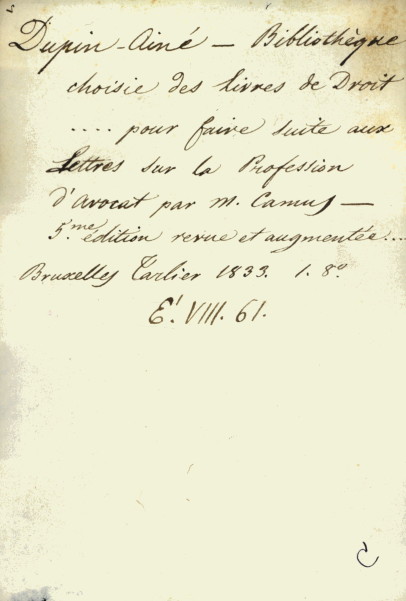 Dupin-Ainé — Bibliothèque
choisie des livres de Droit
.... pour faire suite aux
Lettres sur la Profession
d'Avocat par M. Camus —
5.me édition revue et augmentée...
Bruxelles Tarlier 1833. 1. 8º
E'. VIII. 61.